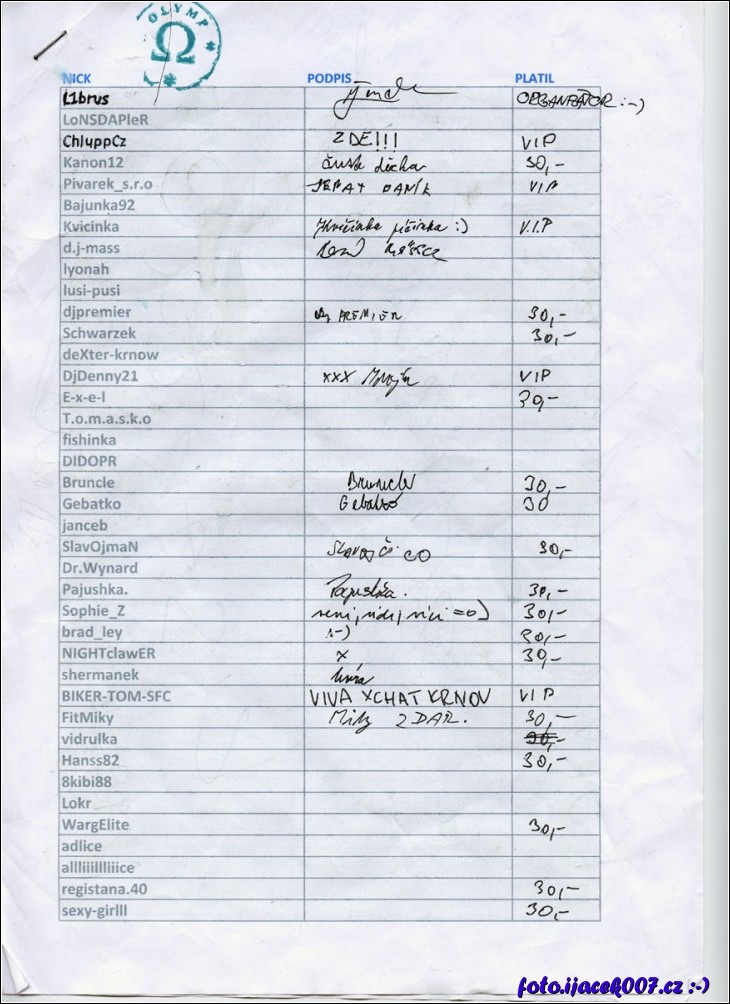 OLYMP
NICK PODPIS PLATIL
L1brus ORGANIZÁTOR :-)
LoNSDAPleR
ChluppCz ZDE!!! VIP
Kanon12 30,-
Pivarek_s.r.o VIP
Bajunka92
Kvicinka :) V.I.P
d.j-mass
lyonah
lusi-pusi
djpremier PREMIER 30,-
Schwarzek 30,-
deXter-krnow
DjDenny21 xxx VIP
E-x-e-l 30,-
T.o.m.a.s.k.o
fishinka
DIDOPR
Bruncle Bruncle 30,-
Gebatko 30
janceb
SlavOjmaN 30,-
Dr.Wynard
Pajushka. 30,-
Sophie_Z =o) 30,-
brad_ley :-) 30,-
NIGHTclawER x 30,-
shermanek
BIKER-TOM-SFC VIVA XCHAT KRNOV VIP
FitMiky Miky ZDAR. 30,-
vidrulka
Hanss82 30,-
8kibi88
Lokr
WargElite 30,-
adlice
allliiillliiice
registana.40 30,-
sexy-girlll 30,-
foto.ijacek007.cz :-)